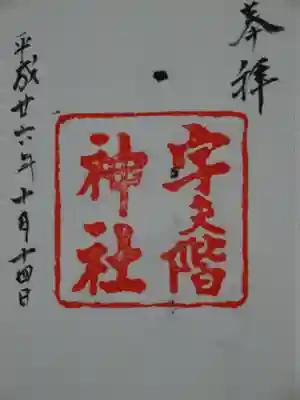 奉拝
字天階
神社
平成廿六年十月十四日